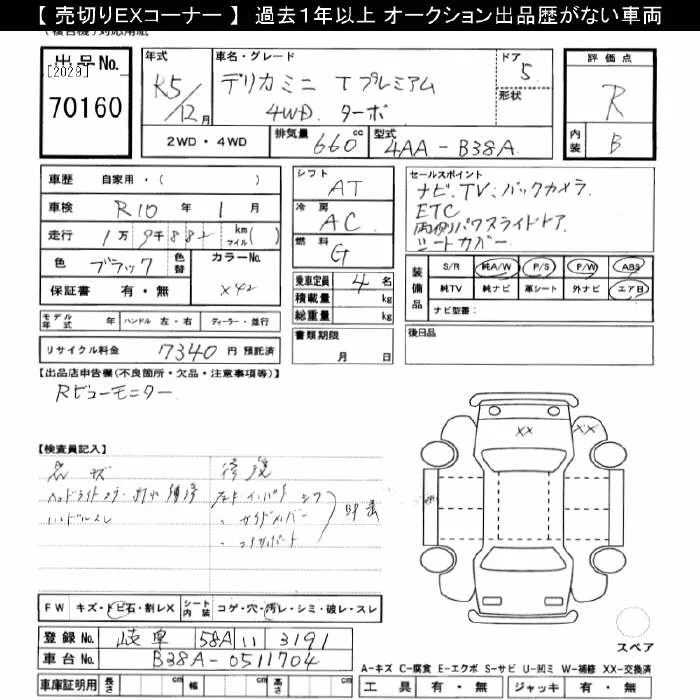 【 売切りEXコーナー 】 過去１年以上 オークション出品歴がない車両
出品No.
[2029]
70160
年式
R5/12月
車名・グレード
デリカミニ Tプレミアム
4WD. ターボ
ドア
5
形状
評価点
R
内装
B
2WD・4WD
排気量 660 cc
型式 4AA-B38A
車歴 自家用・( )
車検 R10 年 1 月
走行 1万 9千 882 km マイル( )
色 ブラック
色替
カラーNo.
X42
保証書 有・無
シフト AT
冷房 AC
燃料 G
乗車定員 4 名
積載量 kg
総重量 kg
書類期限
月 日
セールスポイント
ナビ、TV、バックカメラ.
ETC
両側パワスライドドア
シートカバー.
装備品
S/R 純A/W P/S P/W ABS
純TV 純ナビ 革シート 外ナビ エアB
ナビ型番:
モデル年式 年 ハンドル 左・右 ディーラー・並行
後日品
リサイクル料金 7340 円 預託済
【出品店申告欄(不良箇所・欠品・注意事項等)】
Rビューモニター
【検査員記入】
ハンドルスレ
XX
XX
FW キズ・トビ石・割レX シート内装 コゲ・穴・汚レ・シミ・破レ・スレ
登録No. 岐阜 58A い 3191
車台No. B38A-0511704
スペア
A-キズ C-腐食 E-エクボ S-サビ U-凹ミ W-補修 XX-交換済
車庫証明用 長さ cm 幅 cm 高さ cm
工具 有・無 ジャッキ 有・無